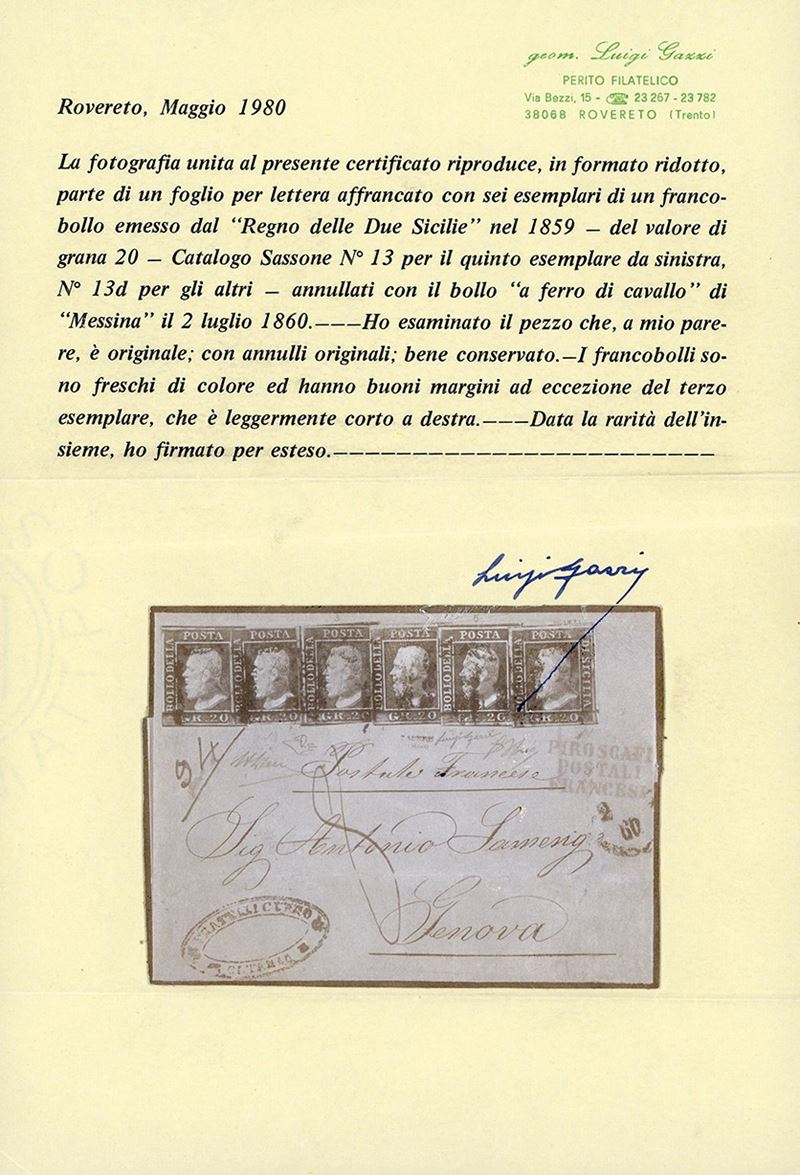 geom. Luigi Gazzi
PERITO FILATELICO
Via Bezzi, 15 - ☎ 23 267 - 23 782
38068 ROVERETO (Trento)
Rovereto, Maggio 1980
La fotografia unita al presente certificato riproduce, in formato ridotto,
parte di un foglio per lettera affrancato con sei esemplari di un franco-
bollo emesso dal "Regno delle Due Sicilie" nel 1859 — del valore di
grana 20 — Catalogo Sassone N° 13 per il quinto esemplare da sinistra,
N° 13d per gli altri — annullati con il bollo "a ferro di cavallo" di
"Messina" il 2 luglio 1860.———Ho esaminato il pezzo che, a mio pare-
re, è originale; con annulli originali; bene conservato.—I francobolli so-
no freschi di colore ed hanno buoni margini ad eccezione del terzo
esemplare, che è leggermente corto a destra.———Data la rarità dell'in-
sieme, ho firmato per esteso.————————————————————————
Luigi Gazzi
POSTA POSTA POSTA POSTA POSTA POSTA
BOLLO DELLA BOLLO DELLA BOLLO DELLA BOLLO DELLA BOLLO DELLA DI SICILIA
GR. 20 GR. 20 GR. 2 GR. 20 GR. 2 GR. 20
PIROSCAFI
POSTALI
FRANCESI
Postale Francese
2
60
Sig Antonio
Genova
FRATELLI